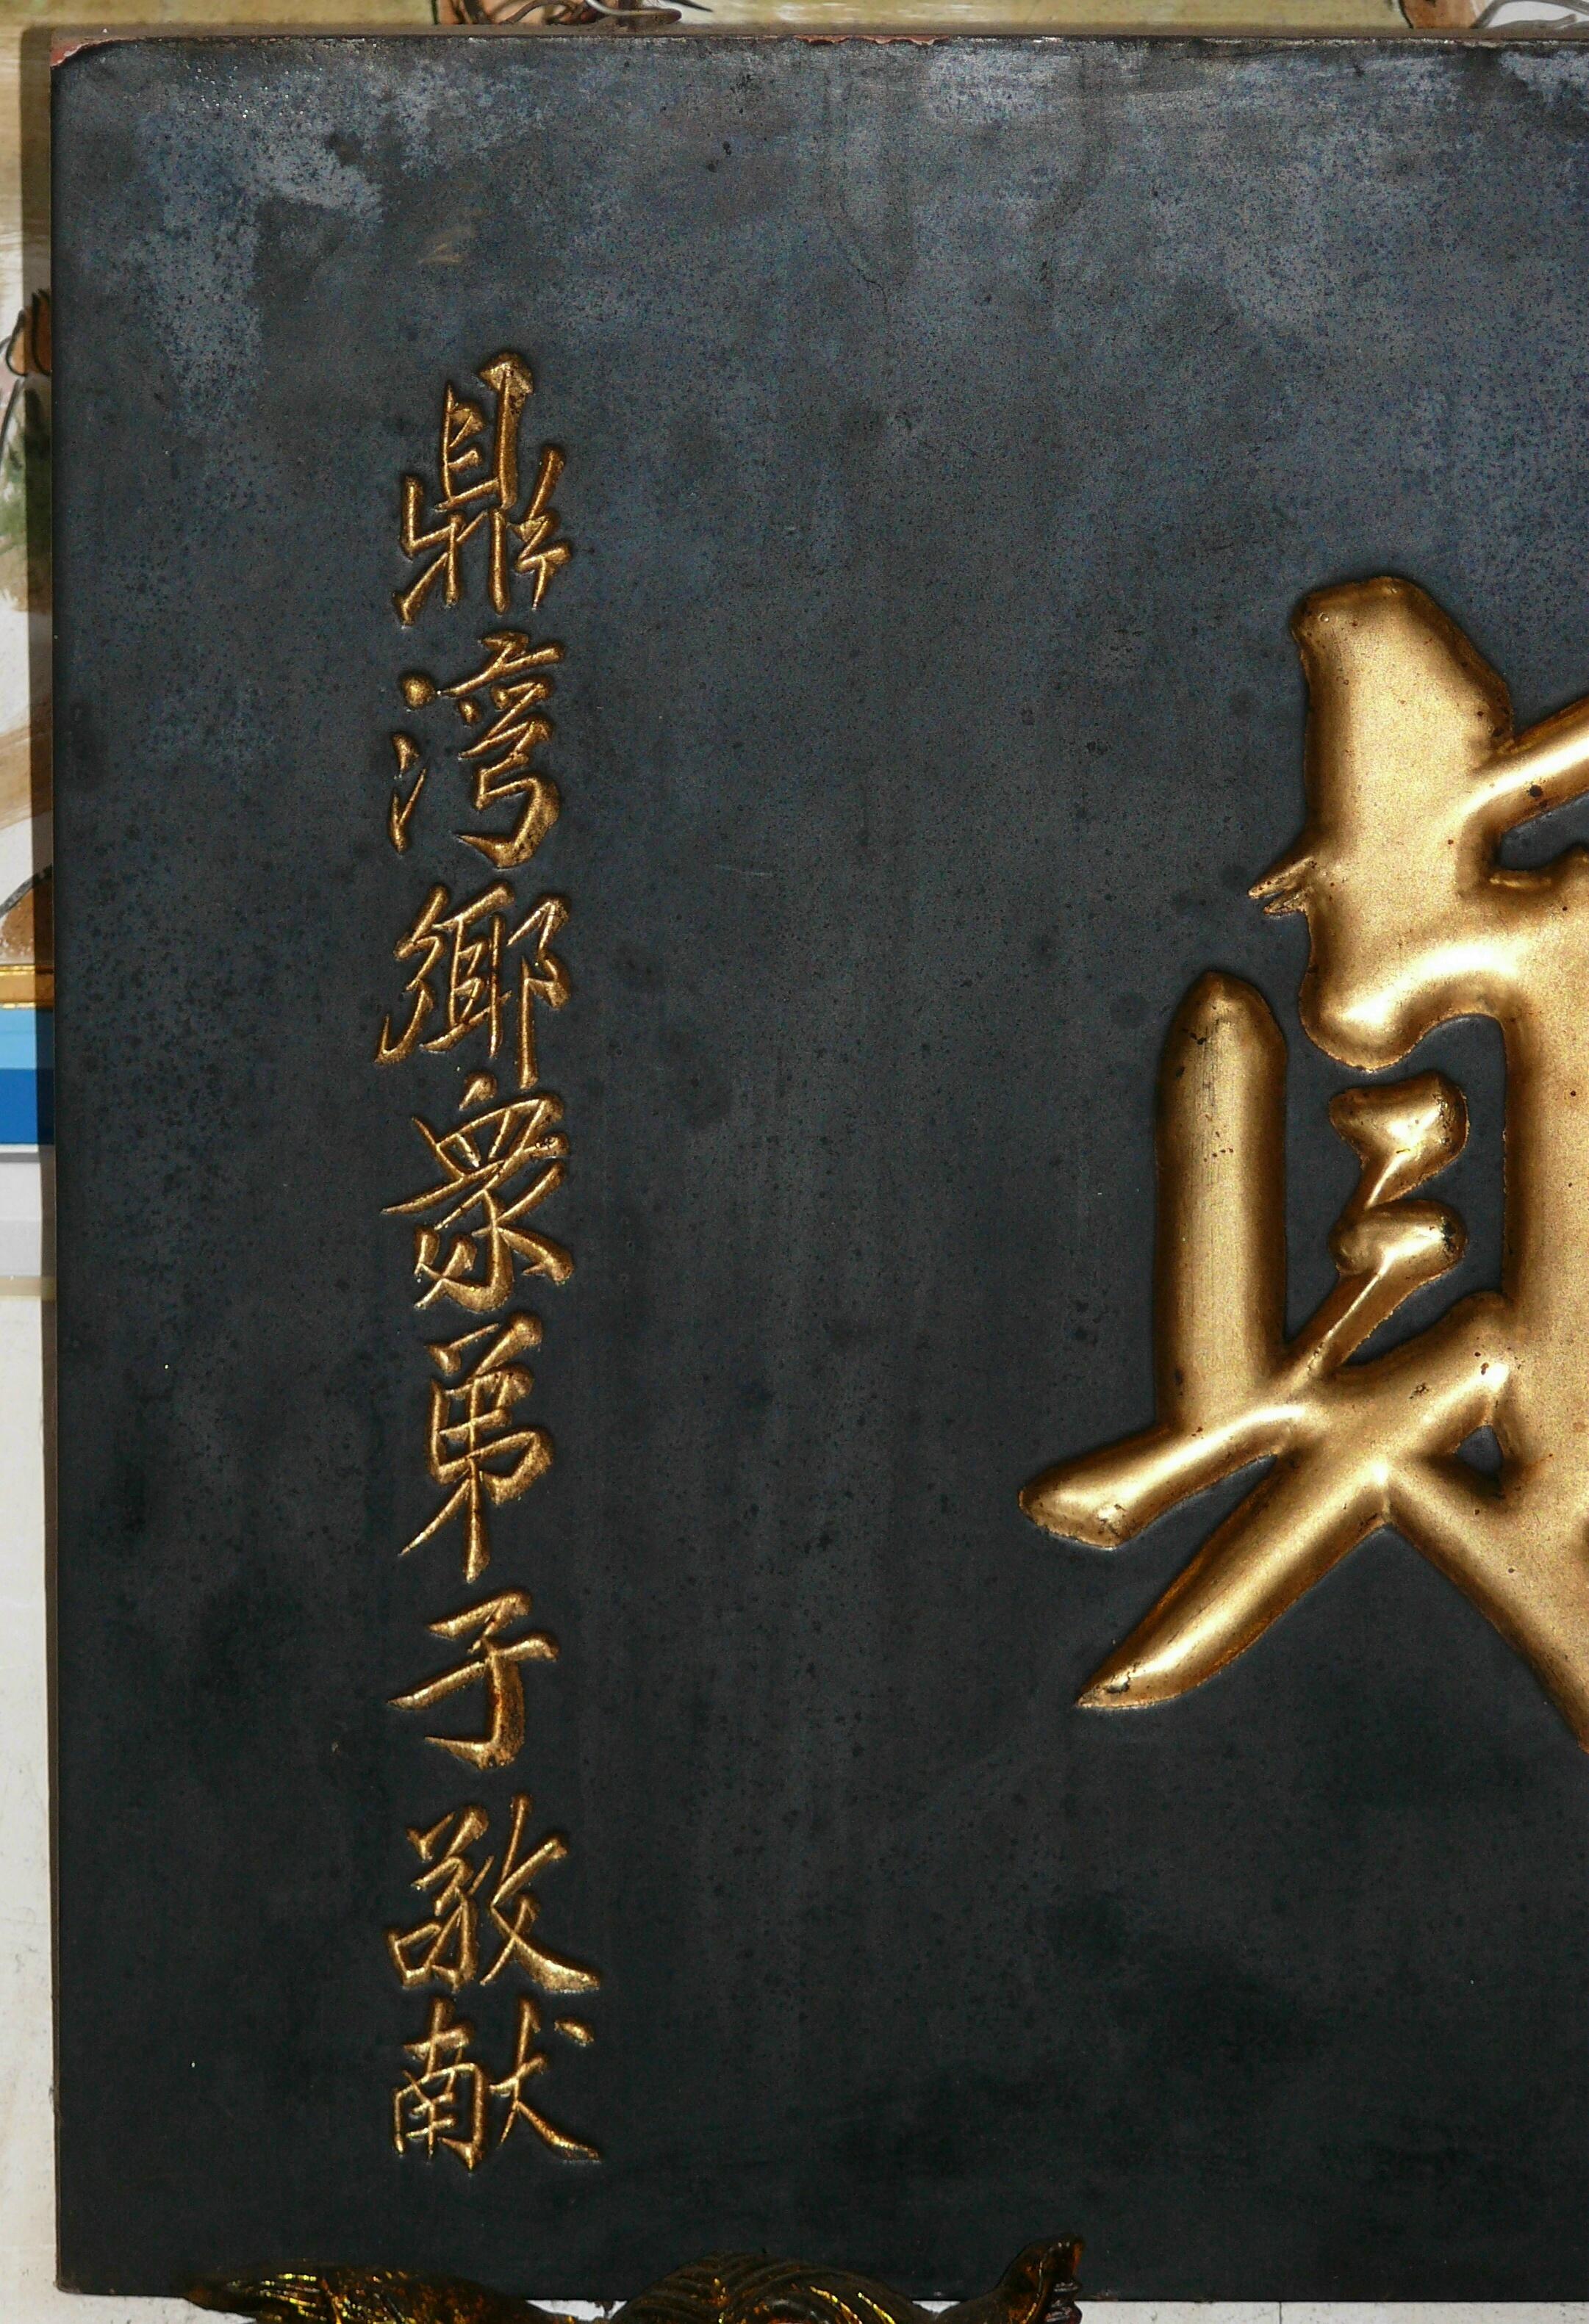 鼎湾鄉衆弟子敬献